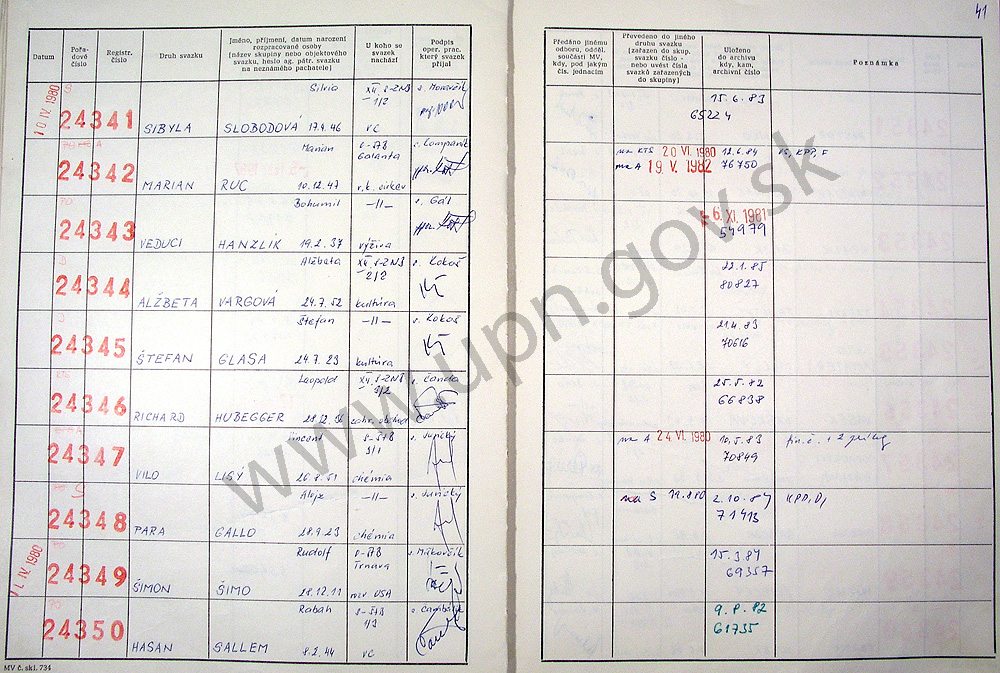 41
Datum
Pořadové číslo
Registr. číslo
Druh svazku
Jméno, příjmení, datum narození rozpracované osoby (název skupiny nebo objektového svazku, heslo ag. pátr. svazku na neznámého pachatele)
U koho se svazek nachází
Podpis oper. prac. který svazek přijal
Předáno jinému odboru, odděl. součásti MV, kdy, pod jakým čís. jednacím
Převedeno do jiného druhu svazku (zařazen do skup. svazku číslo - nebo uvést čísla svazků zařazených do skupiny)
Uloženo do archivu kdy, kam, archivní číslo
Poznámka
10 IV. 1980 S Silvia XII. S-ZNB
24341 1/2 15.6.83
SIBYLA SLOBODOVÁ 17.4.46 VC 65224
A Marian O-ŠTB
24342 Galanta na KTS 20 VI. 1980 12.6.84
MARIAN RUC 10.12.47 r.k. cirkev na A 19. V. 1982 76750
70 Bohumil -||- s. Gál
24343 6. XI. 1981
VEDUCI HANZLIK 19.2.37 výživa 54979
D Alžbeta XII. S-ZNB s. Kokoš
24344 2/2 22.1.85
ALŽBETA VARGOVÁ 24.7.52 kultúra 80827
D Štefan -||- s. Kokoš
24345 21.4.83
ŠTEFAN GLASA 24.7.23 kultúra 70616
KTS Leopold XII. S-ZNB s. Čanda
24346 25.5.82
RICHARD HUBEGGER 66838
Vincent S-ŠTB
24347 3/1 na A 24 VI. 1980 10.5.83
VILO LISÝ 26.8.51 chémia 70849
S Alojz -||-
24348 na S 2.10.84
PARA GALLO 28.9.23 chémia 71413
IV. 1980 70 Rudolf O-ŠTB
24349 Trnava 15.3.84
ŠIMON ŠIMO 28.12.11 USA 69357
70 Rabah S-ŠTB
24350 1/3 9.8.82
HASAN SALLEM 8.2.44 VC 61735
MV č. skl. 734
www.upn.gov.sk